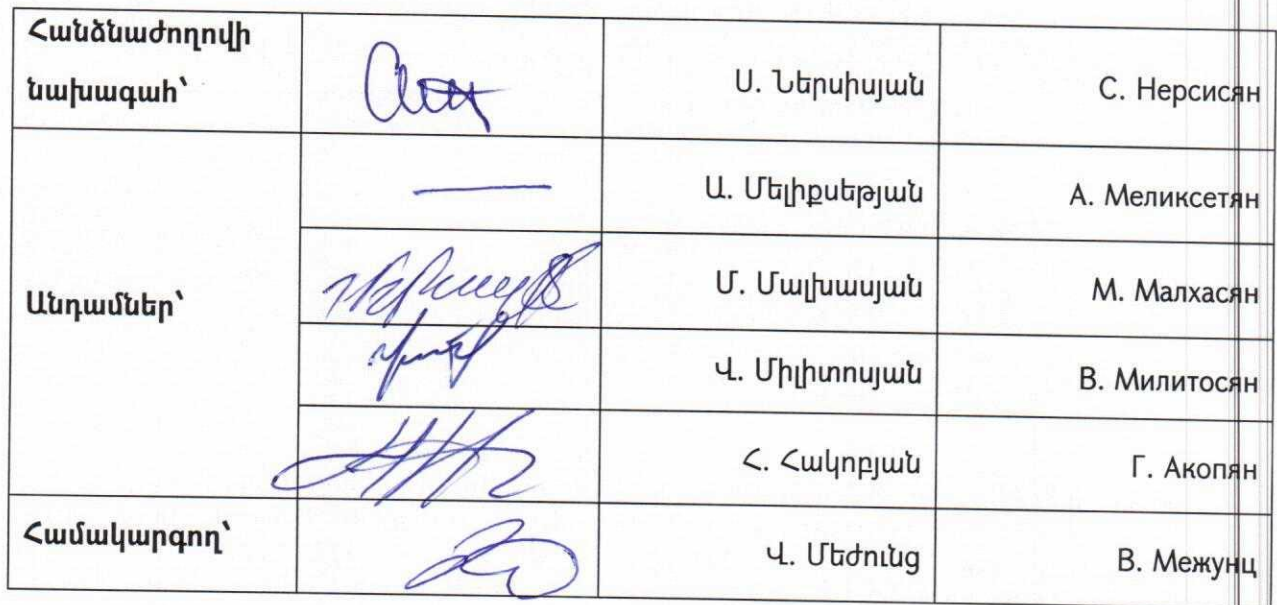 Հանձնաժողովի
նախագահ՝
Ս. Ներսիսյան
С. Нерсисян
Ա. Մելիքսեթյան
А. Меликсетян
Անդամներ՝
Մ. Մալխասյան
М. Малхасян
Վ. Միլիտոսյան
В. Милитосян
Հ. Հակոբյան
Г. Акопян
Համակարգող՝
Վ. Մեժունց
В. Межунц